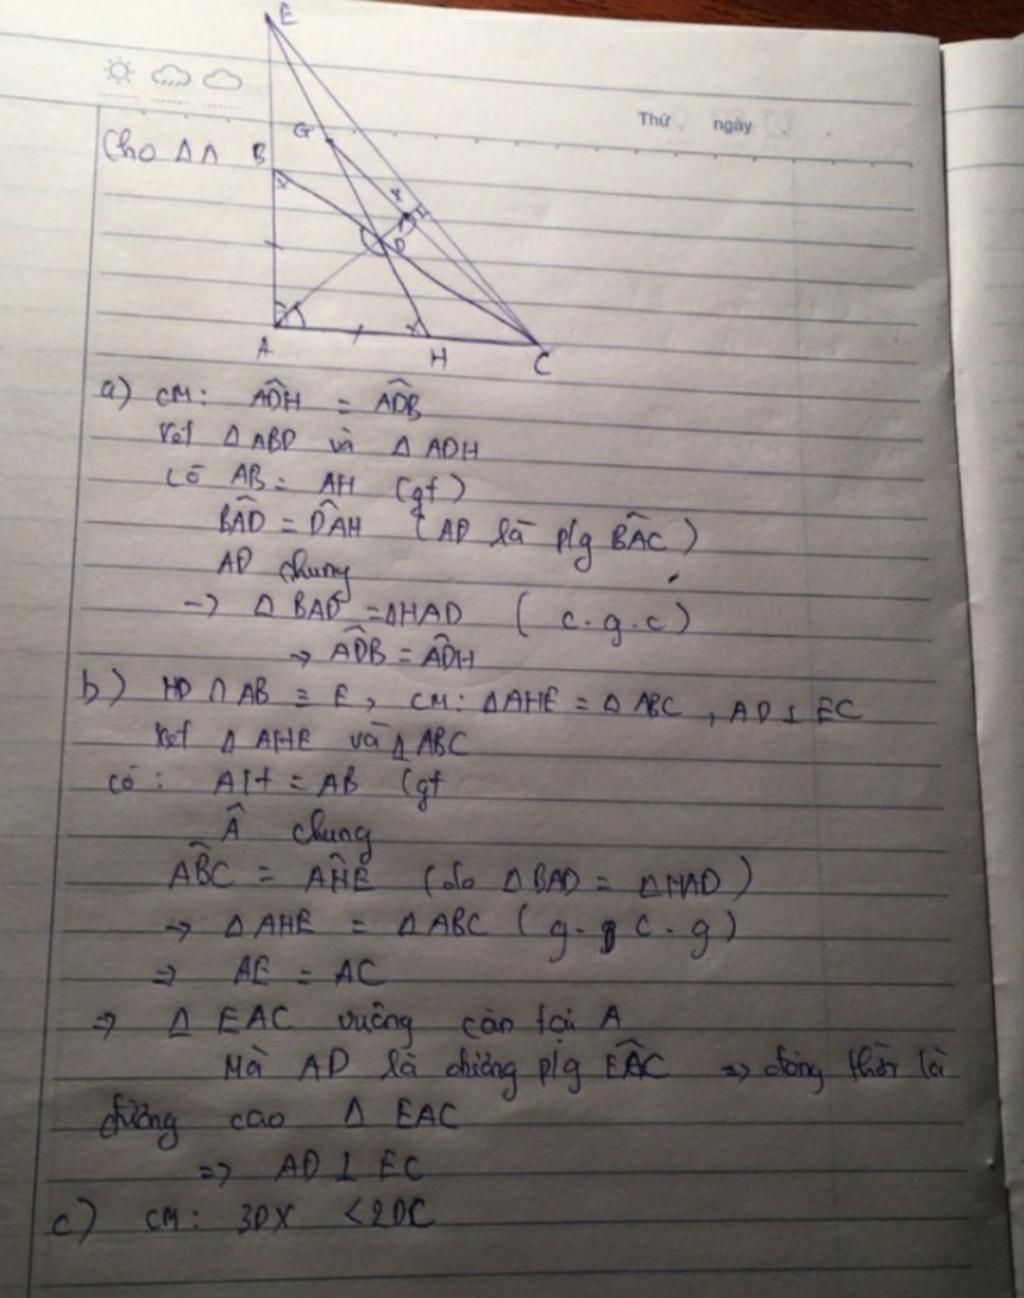 E
Thứ ngày
G
Cho ΔΛ B
x
D
A H C
a) CM: ADH^ = ADB^
Xét Δ ABD và Δ ADH
Có AB = AH (gt)
BAD^ = DAH^ (AD là p/g BAC^)
AD chung
→ Δ BAD = ΔHAD (c.g.c)
→ ADB^ = ADH^
b) HD ∩ AB ≡ E, CM: ΔAHE = Δ ABC, AD ⊥ EC
Xét Δ AHE và Δ ABC
có: AH = AB (gt
A^ chung
ABC^ = AHE^ (do Δ BAD = ΔHAD)
→ Δ AHE = Δ ABC (g. c. g)
⇒ AE = AC
⇒ Δ EAC vuông cân tại A
Mà AD là đường p/g EAC^ ⇒ đồng thời là
đường cao Δ EAC
⇒ AD ⊥ EC
c) CM: 3DX < 2DC